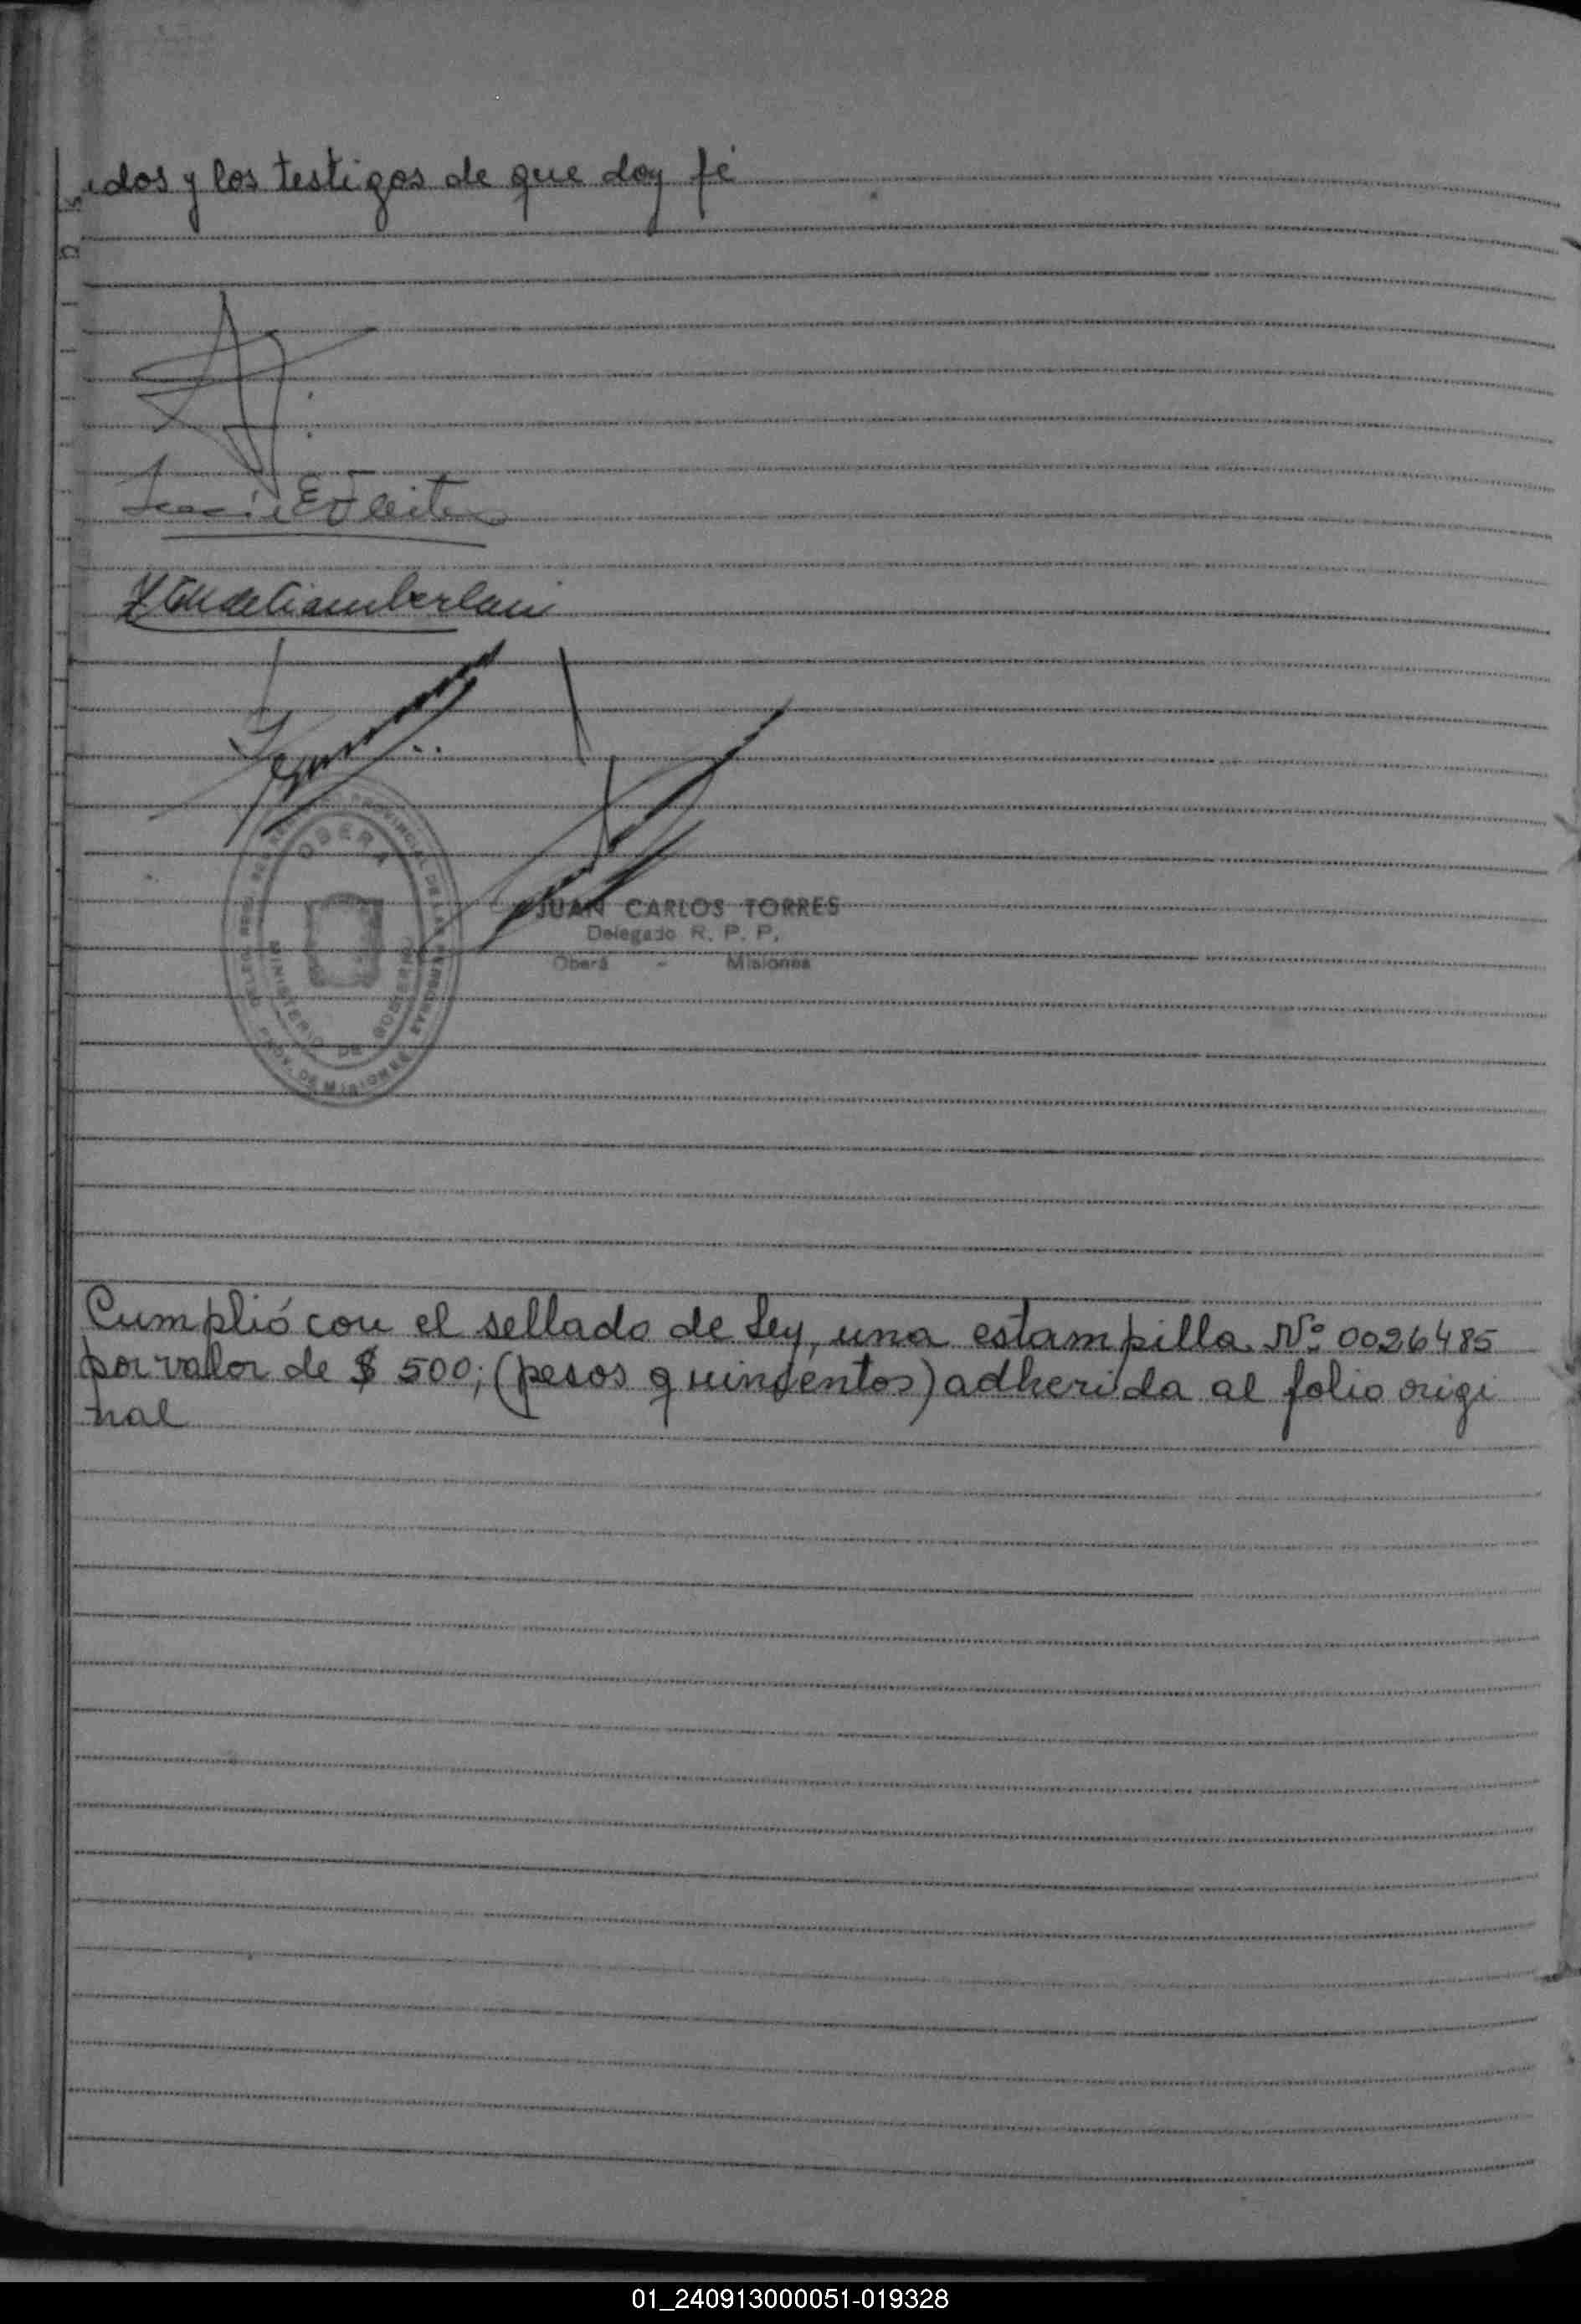 idos y los testigos de que doy fé
OBERA
MINISTERIO DE GOBIERNO
PROV. DE MISIONES
JUAN CARLOS TORRES
Delegado R. P. P.
Oberá - Misiones
Cumplió con el sellado de Ley, una estampilla Nº: 0026485
por valor de $ 500; (pesos quinientos) adherida al folio origi
nal
01_240913000051-019328